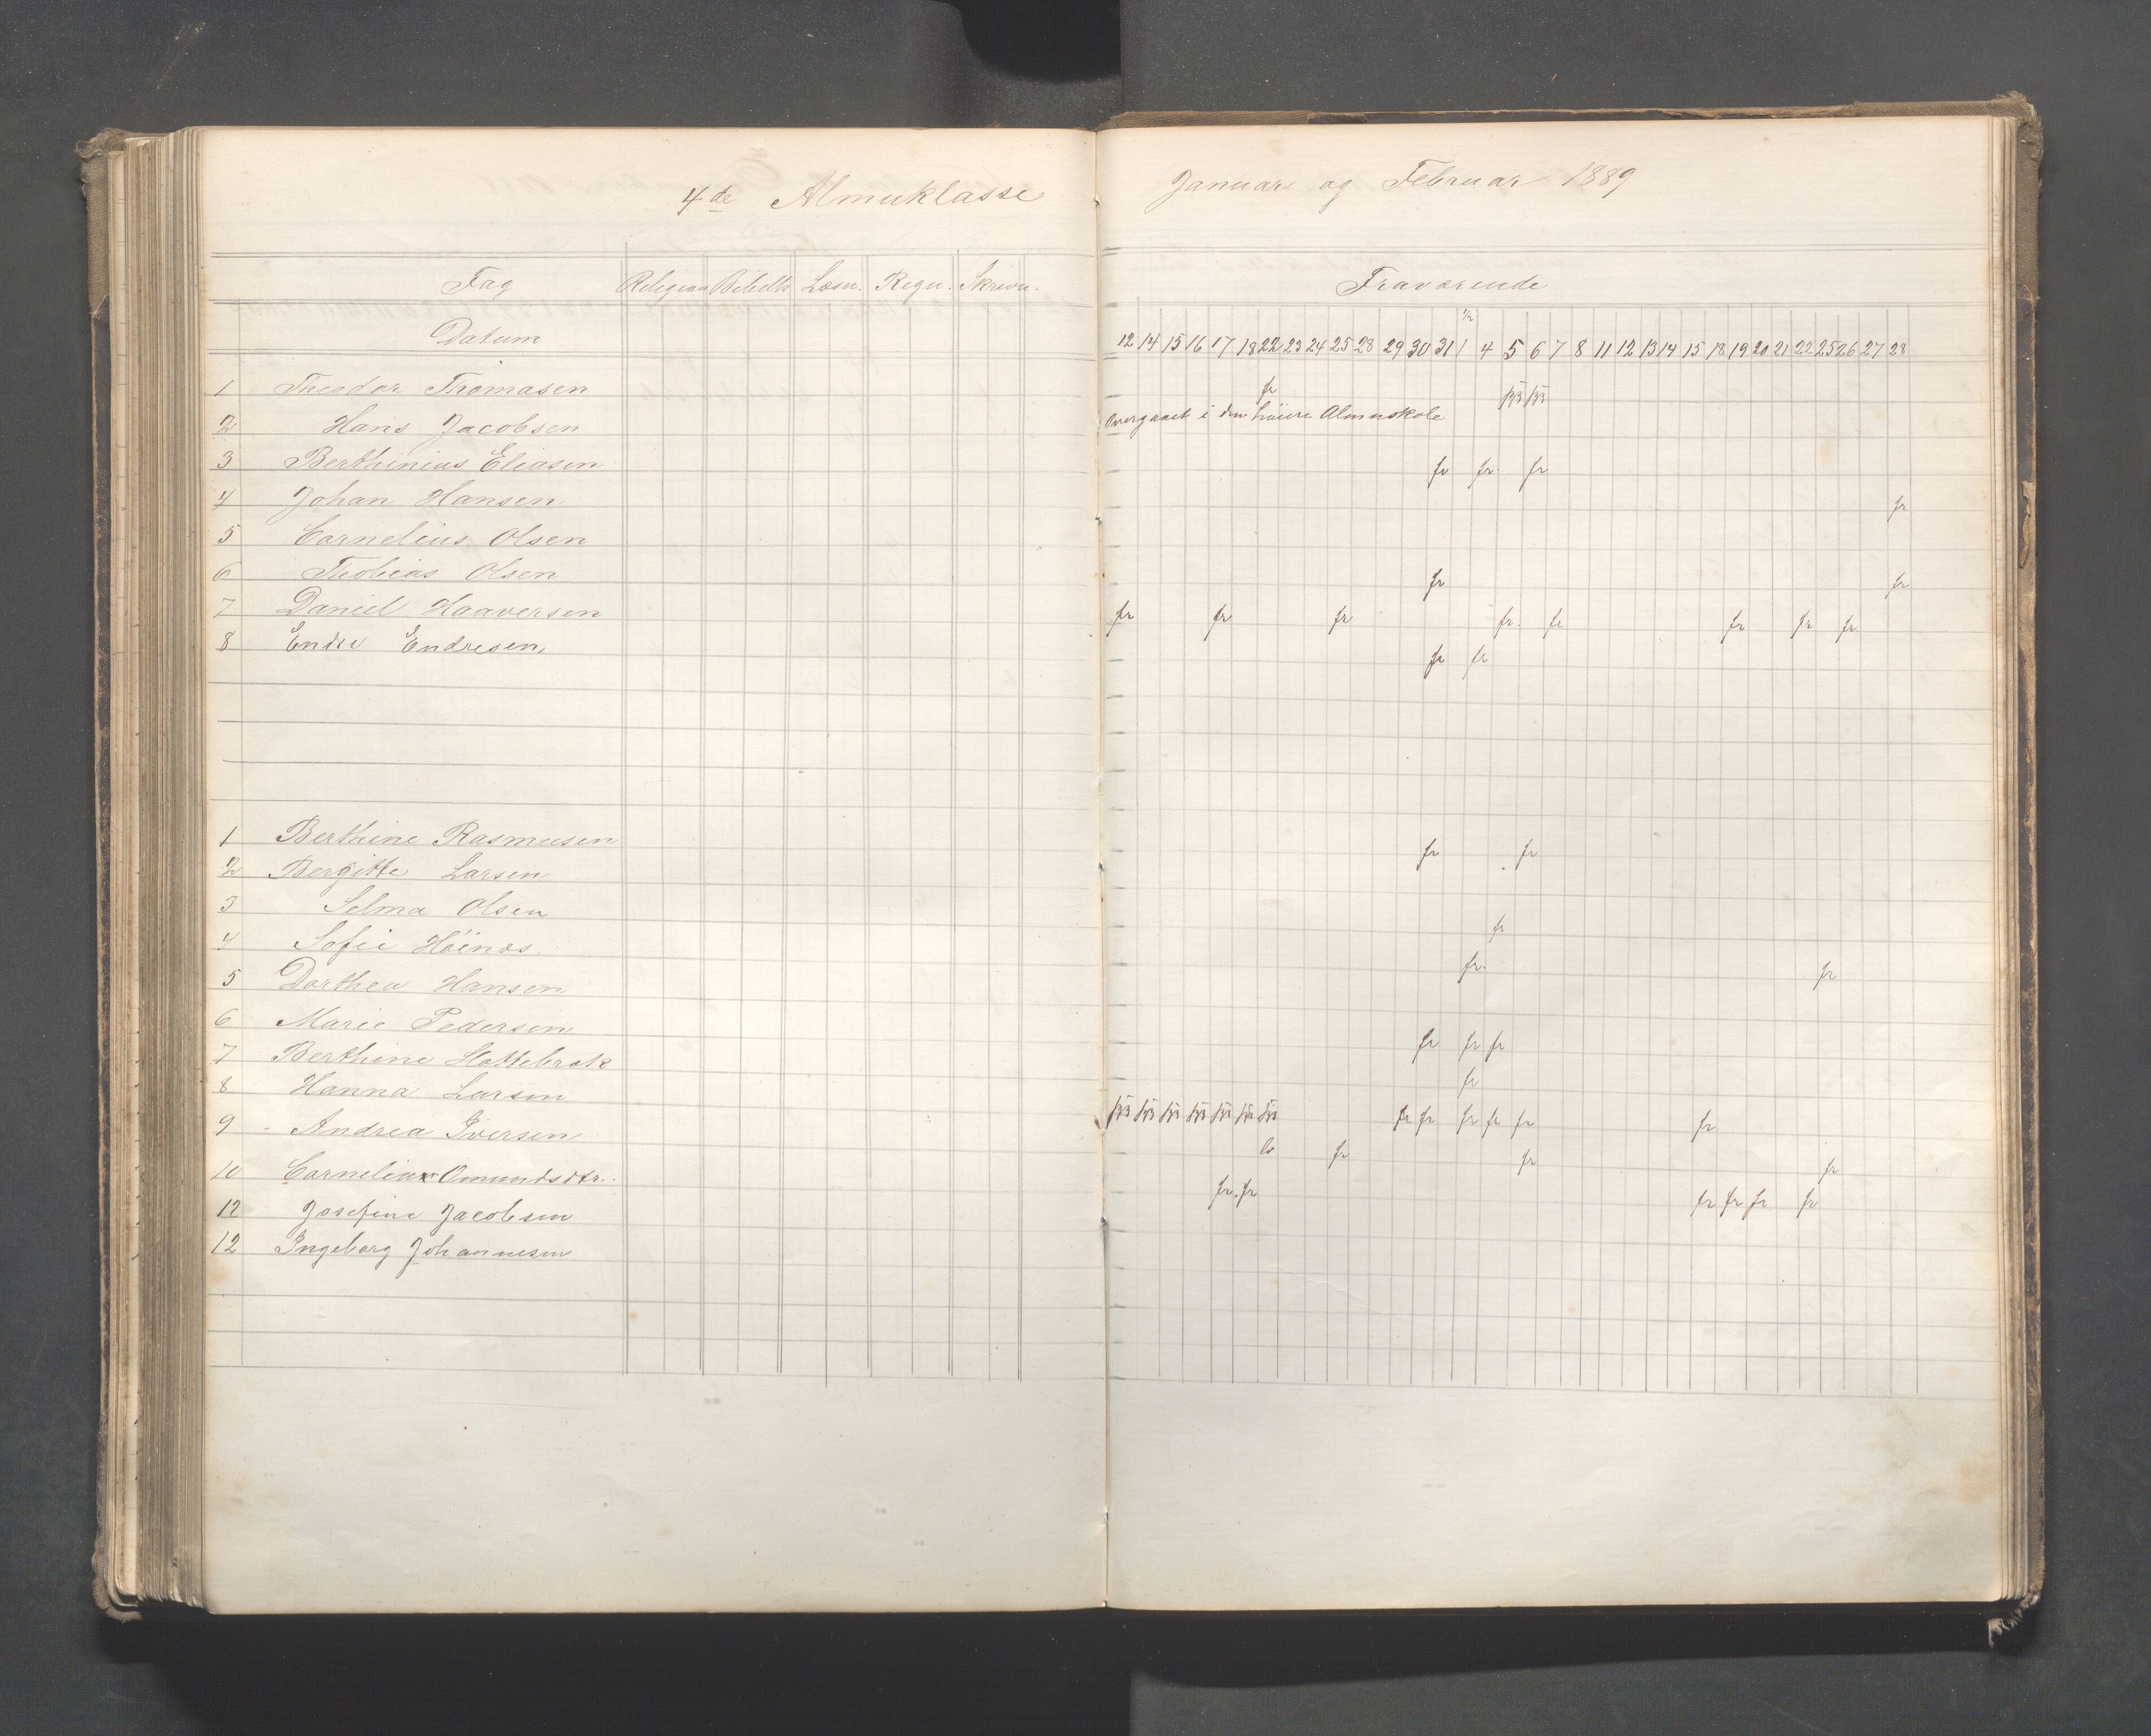 4de Almuklasse
Januar og Februar 1889
Fag Religion Bibelh Læsn. Regn. Skrivn.
Fraværende
Datum
1/2
12 14 15 16 17 18 22 23 24 25 28 29 30 31 1 4 5 6 7 8 11 12 13 14 15 18 19 20 21 22 25 26 27 28
1 Theodor Thomasen fr
2 Hans Jacobsen Overgaaet i den høiere Almuskole
3 Berthinius Eliasen fr fr. fr
4 Johan Hansen fr
5 Cornelius Olsen
6 Thobias Olsen fr fr
7 Daniel Haaversen fr fr fr fr. fr fr fr fr
8 Endre Endresen. fr fr
1 Berthine Rasmusen fr fr
2 Bergitte Larsen
3 Selma Olsen fr
4 Sofie Höinæs. fr. fr
5 Dorthea Hansen
6 Marie Pedersen fr fr fr
7 Berthine Hattebræk fr
8 Hanna Larsen fr fr fr fr fr fr
9 Andrea Iversen fr fr fr
10 Cornelia Omundsdtr. fr. fr fr fr fr fr
12 Josefine Jacobsen
12 Ingeborg Johannesen